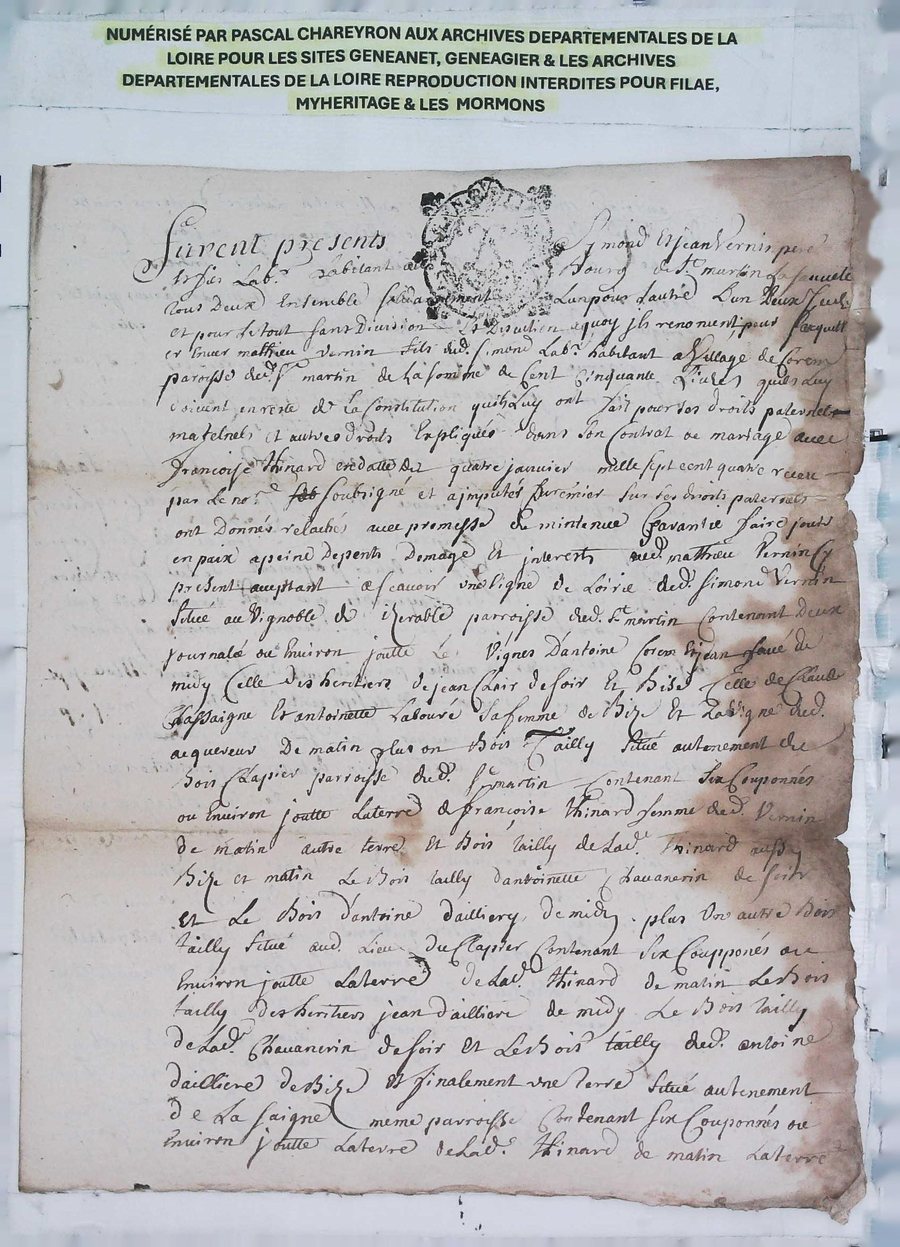 NUMÉRISÉ PAR PASCAL CHAREYRON AUX ARCHIVES DEPARTEMENTALES DE LA
LOIRE POUR LES SITES GENEANET, GENEAGIER & LES ARCHIVES
DEPARTEMENTALES DE LA LOIRE REPRODUCTION INTERDITES POUR FILAE,
MYHERITAGE & LES MORMONS
Furent presents Simond Et jean Vernin pere
et fils Lab.r habitant au Bourg de St. martin La sauveté
tous Deux Ensemble solidairement Lun pour Lautre L'un Deux seul
et pour le tout sans Division Ny Discution aquoy jls renoncent, pour
er Enver mathieu Vernin fils dud. simond Lab.r habitant a Village de Corem
paroisse dud. St. martin de La somme de Cent Cinquante Livres quils Luy
doivent en reste de La Constitution quils Luy ont fait pour ses droits paternels
maternels et autres droits Expliqués dans son Contrat de mariage avec
françoise thinard en datte du quatre janvier mille sept cent quatre receu
par Le no.re soubsigné et a jmputer sur ses droits paternels
ont Donnés relachés avec promesse de mintenue Garantie faire jouir
en paix a peine depents Domage Et jnterests aud. mathieu Vernin Cy
present acceptant ascavoir une Vigne de Loirie dud. simond Vernin
situé au Vignoble de parroisse dud. St. martin Contenant Deux
journalé ou Environ joutte Les Vignes D'antoine Corem Et jean de
midy Celle des heritiers de jean Clair de soir Et Bize Celle de Claude
Chassaigne Et antoinette Labouré sa femme de Bize Et La Vigne dud.
acquereur De matin plus on Bois Tailly situé au tenement du
Bois Clapier parroisse dud. St. martin Contenant six Couponnés
ou Environ joutte Laterre de françoise thinard femme dud. Vernin
de matin autre terre Et Bois tailly de Lad.e thinard aussy
Bize et matin Le Bois tailly dantoinette Chavanerin de soir
et Le Bois d'antoine dailliery de midy. plus Un autre Bois
tailly situé aud. Lieu du Clapier Contenant six Coupponés ou
Environ joutte Laterre de Lad.e thinard de matin Le Bois
tailly des heritiers jean dailliere de midy Le Bois tailly
de Lad.e Chavanerin de soir Et Le Bois tailly dud. antoine
dailliere de Bize Et finalement une Terre situé autenement
de La saigne meme parroisse Contenant six Couponnés ou
Environ joutte Laterre de Lad.e thinard de matin Laterre